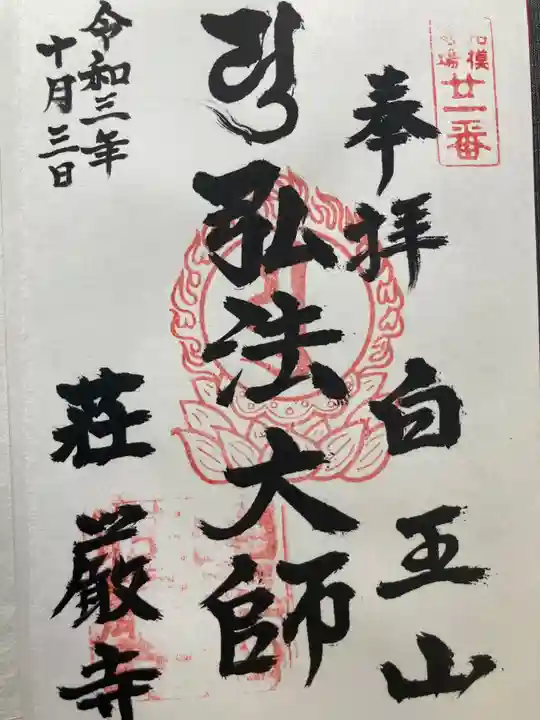 模
場
廿一番
奉拝
白王山
弘法大師
荘厳寺
令和三年
十月三日